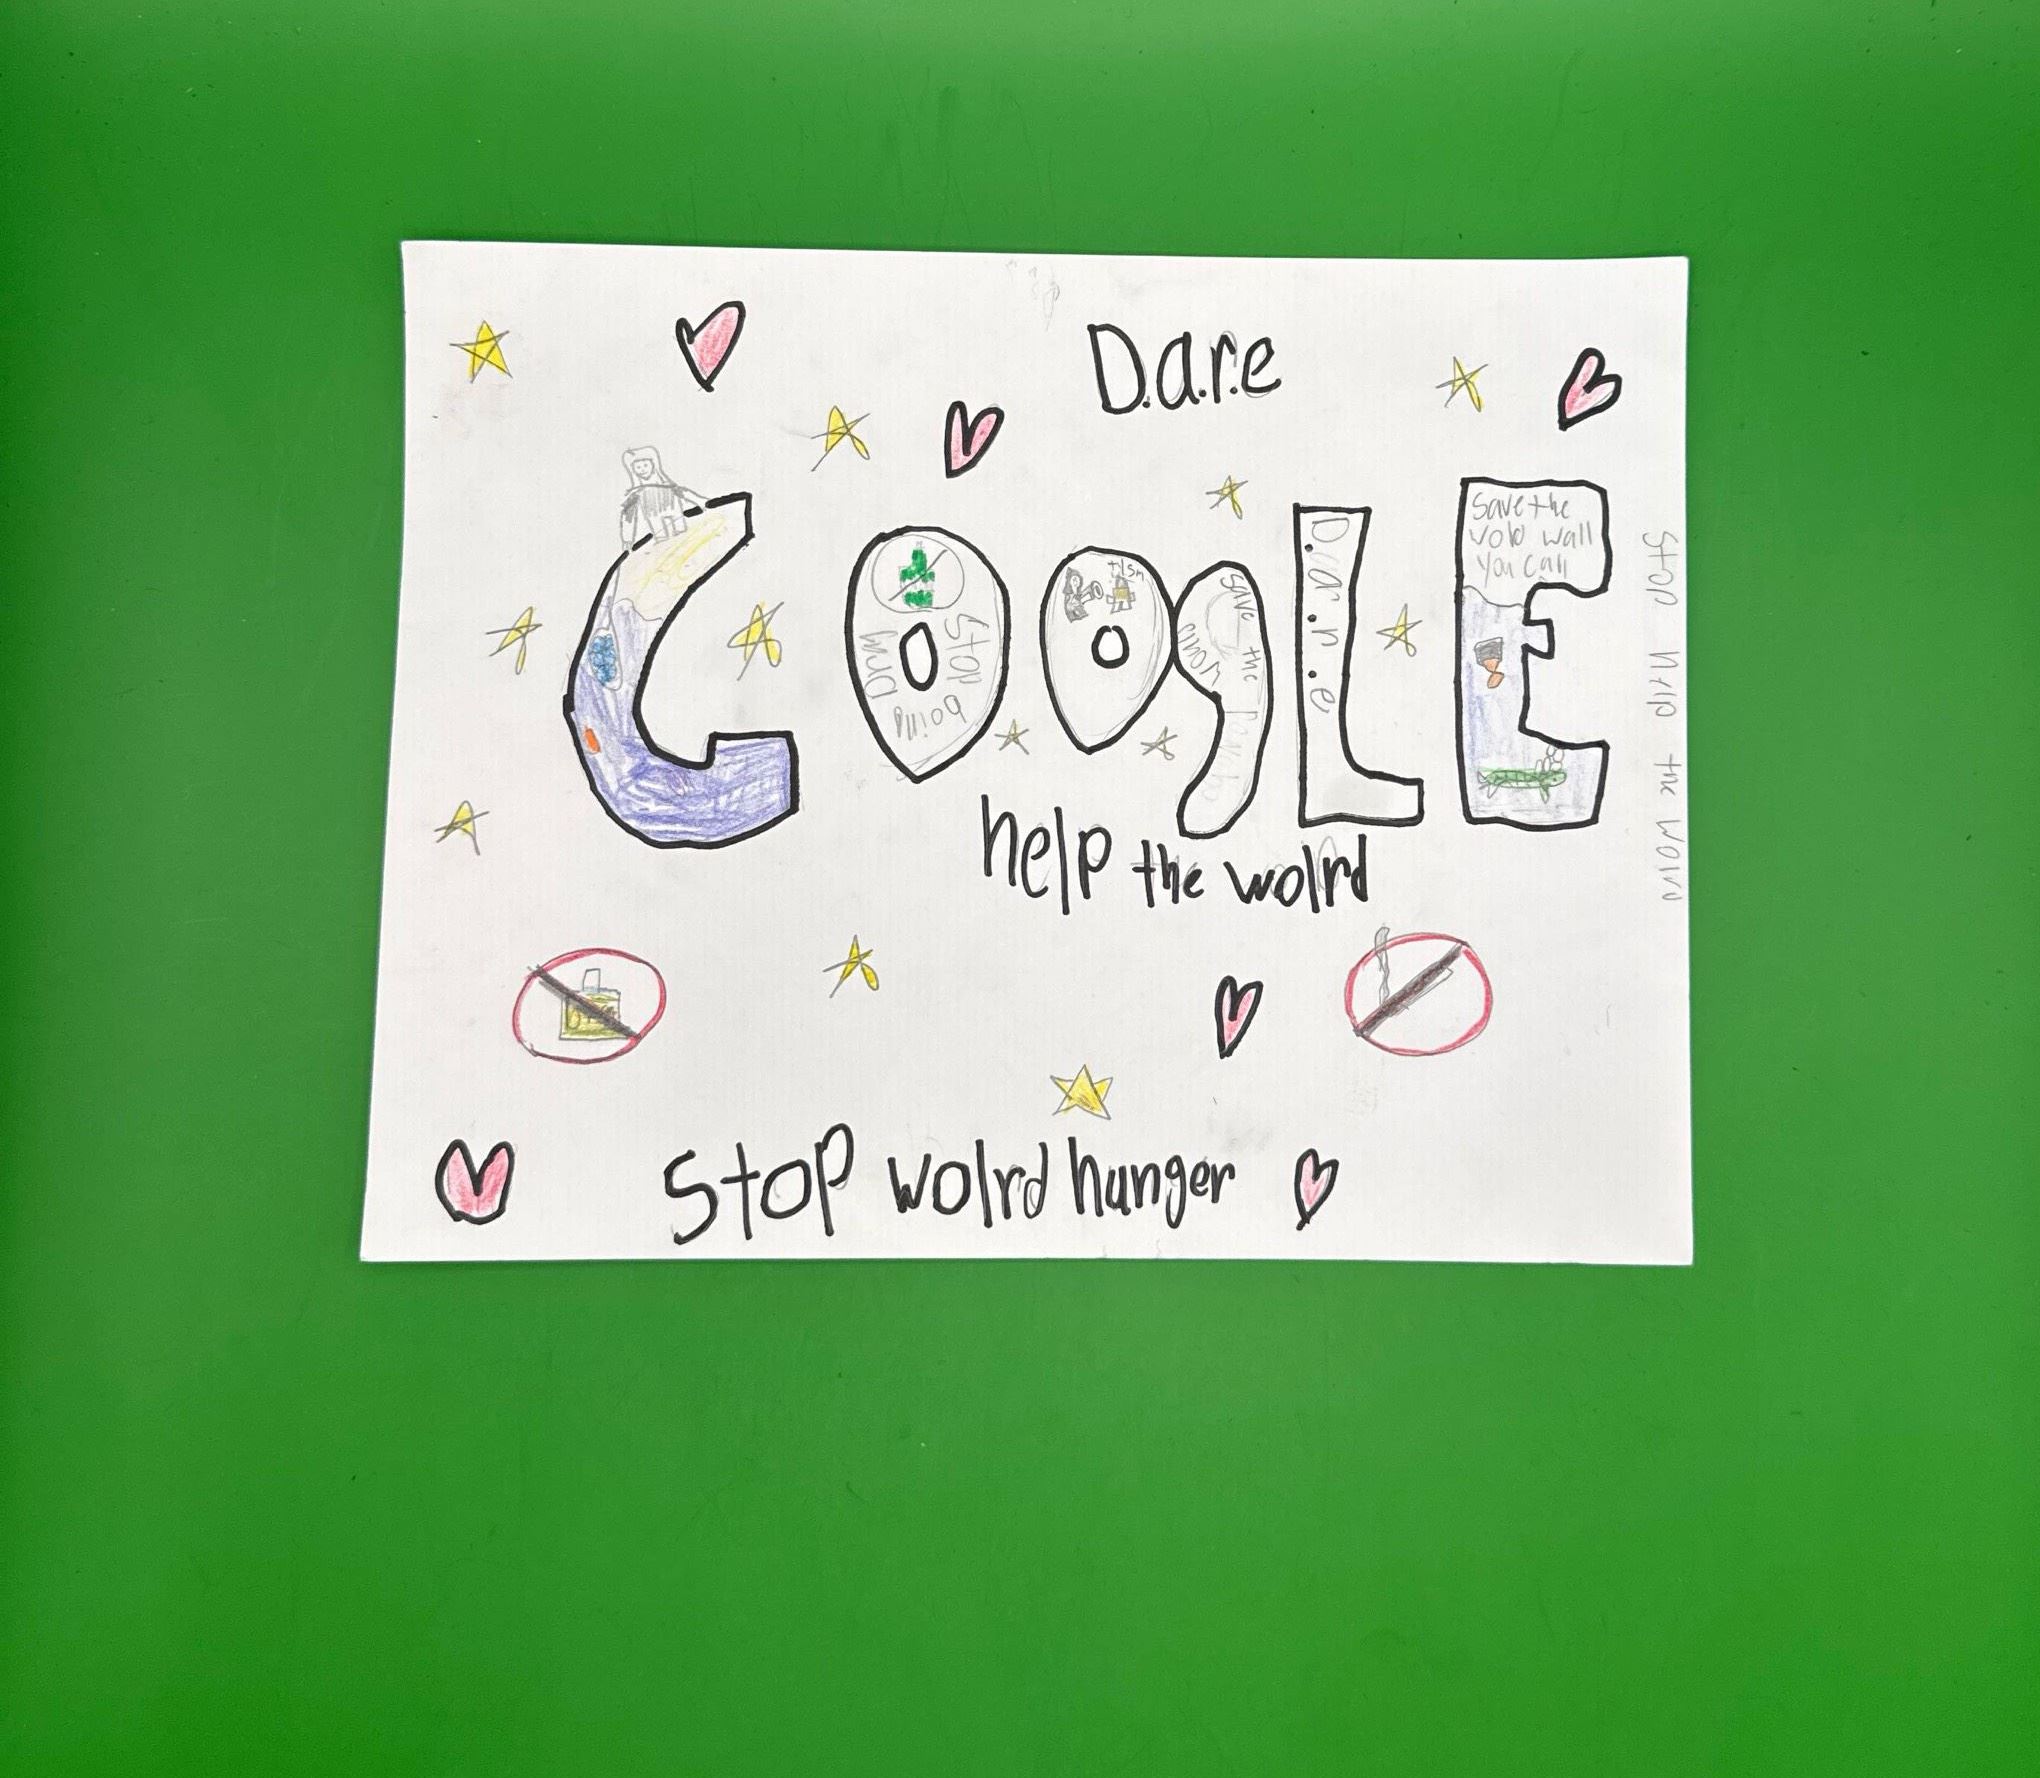 D.a.r.e
GOOgLE
Stop
boing
Drug
Save the
D.a.r.e
Save the
wold wall
you can
Stop help the World
help the wolrd
Stop wolrd hunger